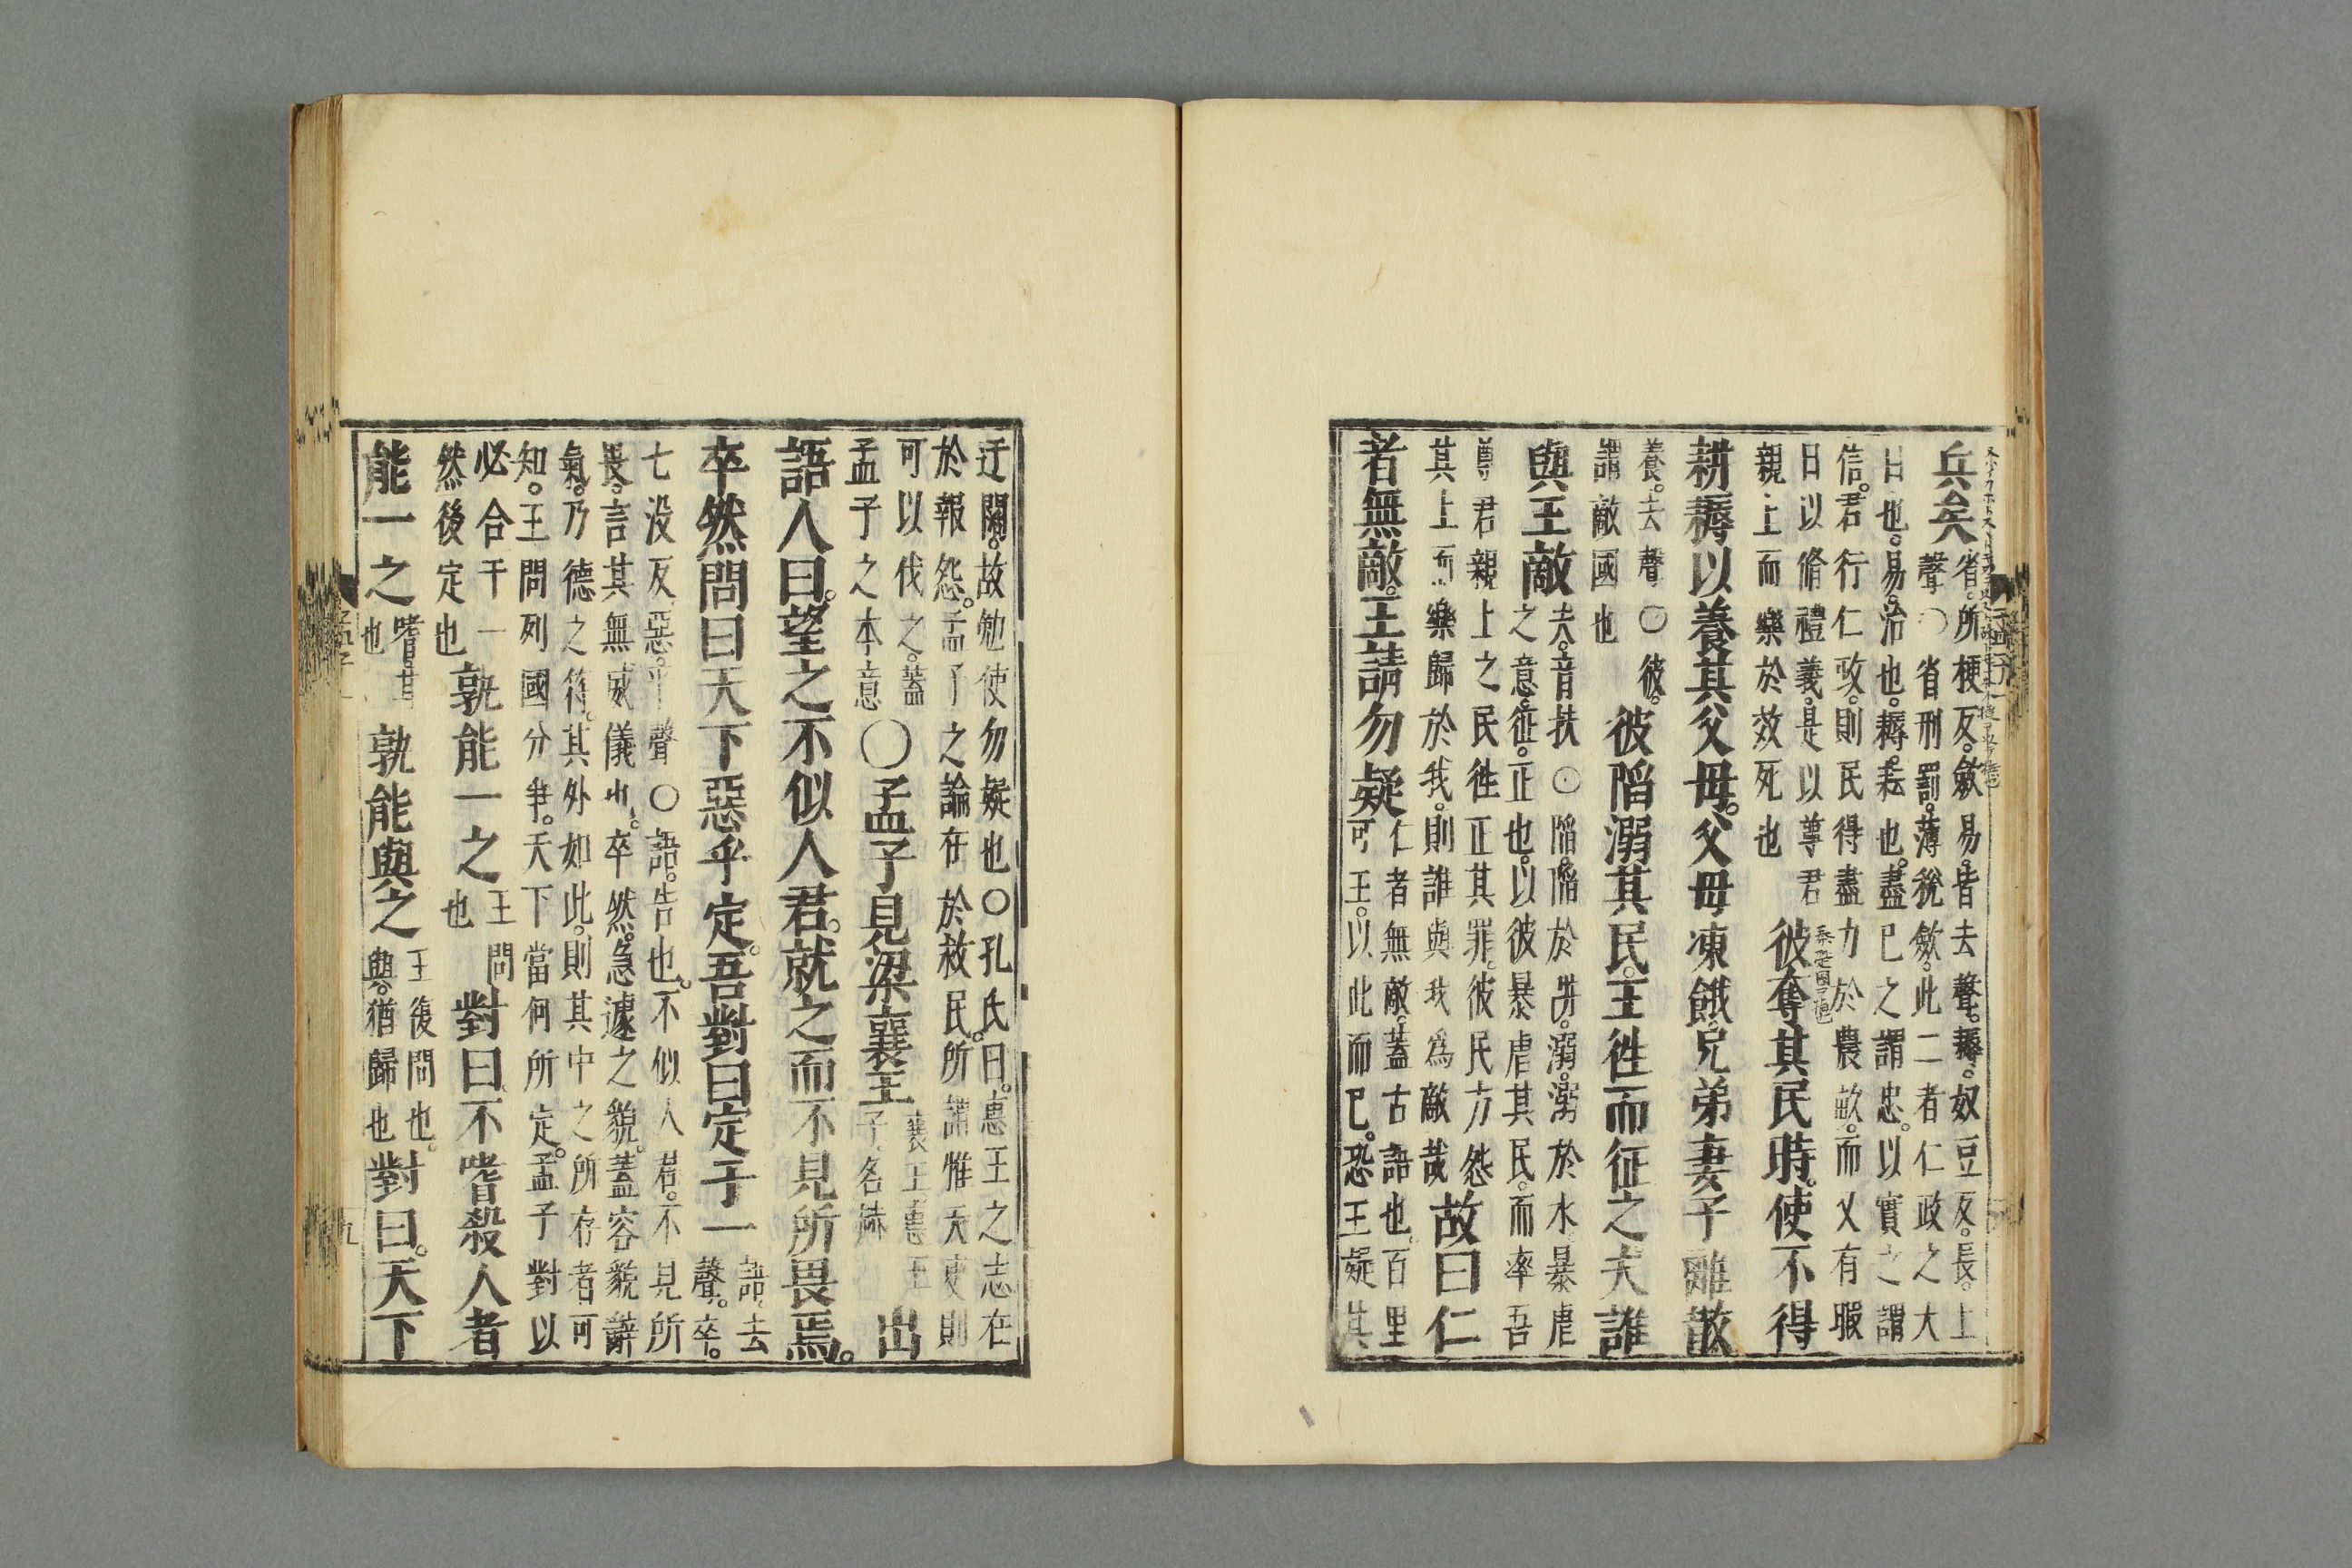 兵矣
省。所梗反。斂易。皆去聲。耨。奴豆反。長。上
聲○省刑罰。薄稅斂。此二者仁政之大
目也。易。治也。耨。耘也。盡己之謂忠。以實之謂
信。君行仁政。則民得盡力於農畝。而又有暇
日以脩禮義。是以尊君
親上而樂於效死也
彼奪其民時。使不得
耕耨以養其父母。父母凍餓。兄弟妻子離散
養。去聲○彼。
謂敵國也
彼陷溺其民。王徃而征之夫誰
與王敵
夫。音扶○陷。陷於穽。溺。溺於水。暴虐
之意。征。正也。以彼暴虐其民。而率吾
尊君親上之民徃正其罪。彼民方怨
其上而樂歸於我。則誰與我爲敵哉
故曰仁
者無敵。王請勿疑
仁者無敵。蓋古語也。百里
可王。以此而已。恐王疑其
迂闊。故勉使勿疑也○孔氏曰。惠王之志在
於報怨。孟子之論在於救民。所謂惟天吏則
可以伐之。蓋
孟子之本意
○孟子見梁襄王
襄王。惠王
子。名赫
出
語人曰。望之不似人君。就之而不見所畏焉。
卒然問曰天下惡乎定。吾對曰定于一
語。去
聲。卒。
七没反。惡。平聲○語。告也。不似人君。不見所
畏。言其無威儀也。卒然。急遽之貌。蓋容貌辭
氣。乃德之符。其外如此。則其中之所存者可
知。王問列國分爭。天下當何所定。孟子對以
必合于一
然後定也
孰能一之
王問
也
對曰。不嗜殺人者
能一之
嗜。甘
也
孰能與之
王復問也。
與。猶歸也
對曰。天下
孟子
九